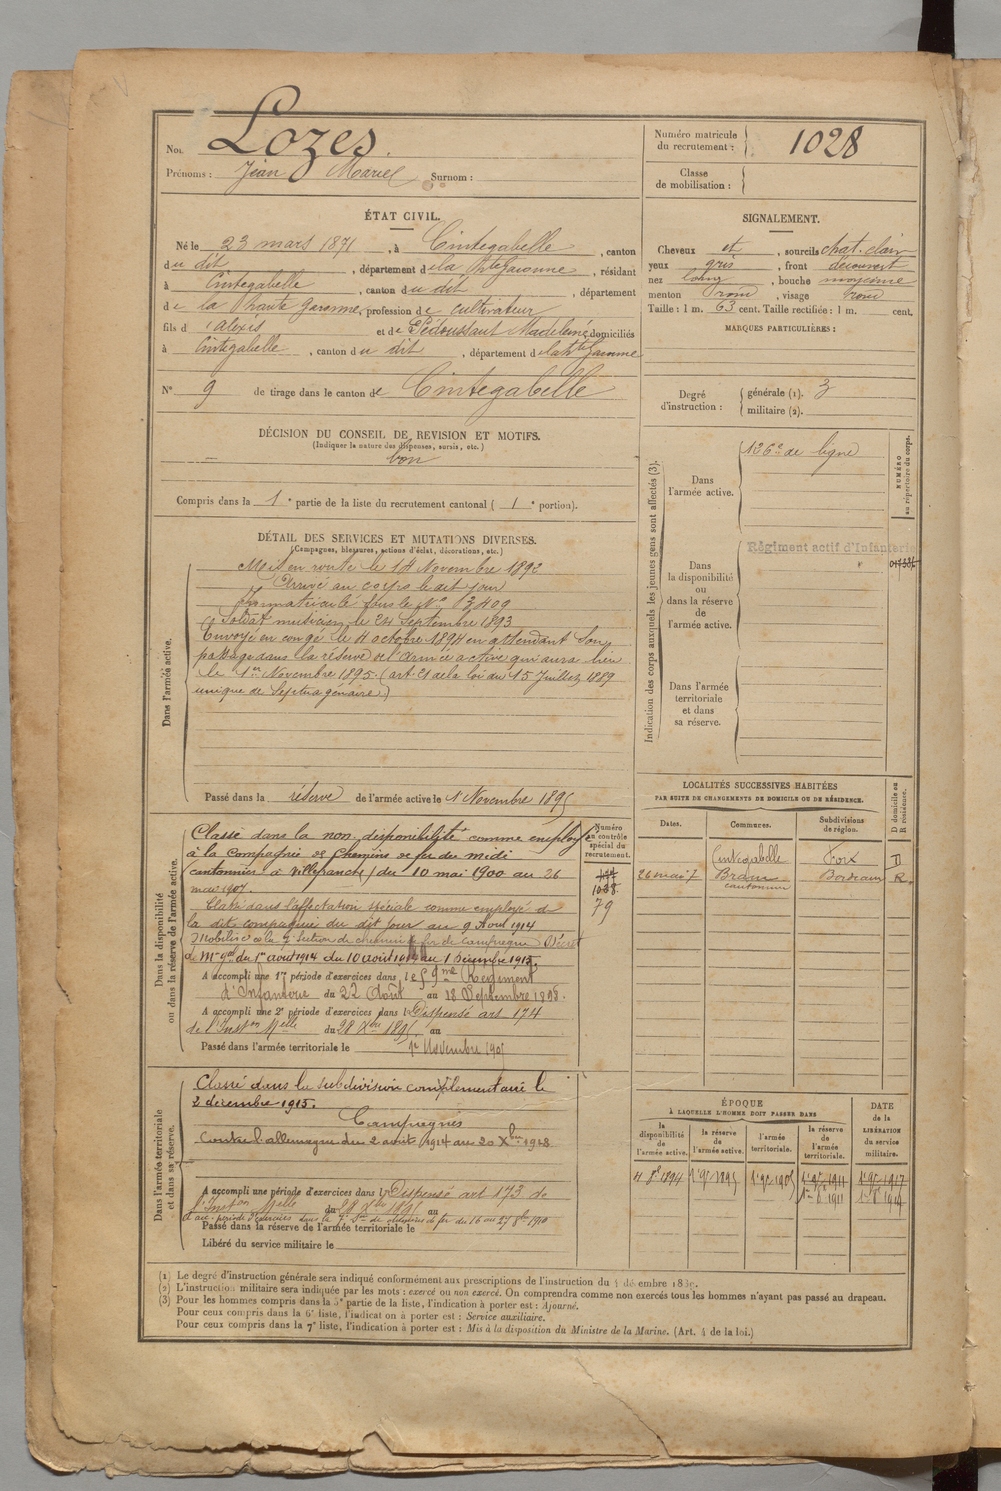 Nom Lozes
Prénoms : Jean Marie Surnom :
Numéro matricule
du recrutement : 1028
Classe
de mobilisation :
ÉTAT CIVIL.
Né le 23 mars 1871, à Cintegabelle, canton
du dit, département de la Hte Garonne, résidant
à Cintegabelle, canton du dit, département
de la haute Garonne, profession de cultivateur
fils d'alexis et de Pédoussaut Madeleine, domiciliés
à Cintegabelle, canton du dit, département de la hte Garonne
N° 9 de tirage dans le canton de Cintegabelle
SIGNALEMENT.
Cheveux et, sourcils chat. clair
yeux gris, front découvert
nez long, bouche moyenne
menton rond, visage rond
Taille : 1 m. 63 cent. Taille rectifiée : 1 m. cent.
MARQUES PARTICULIÈRES :
Degré
d'instruction :
générale (1). 3
militaire (2).
DÉCISION DU CONSEIL DE REVISION ET MOTIFS.
(Indiquer la nature des dispenses, sursis, etc.)
bon
Compris dans la 1e partie de la liste du recrutement cantonal (1e portion).
Indication des corps auxquels les jeunes gens sont affectés (3).
Dans
l'armée active.
126e de ligne
NUMÉRO
au répertoire du corps.
Dans
la disponibilité
ou
dans la réserve
de
l'armée active.
Régiment actif d'Infanterie
Dans l'armée
territoriale
et dans
sa réserve.
DÉTAIL DES SERVICES ET MUTATIONS DIVERSES.
(Campagnes, blessures, actions d'éclat, décorations, etc.)
Dans l'armée active.
Mis en route le 14 Novembre 1892
Arrivé au corps le dit jour
Immatriculé sous le No 3409
Soldat musicien le 24 Septembre 1893
Envoyé en congé le 4 octobre 1894 en attendant son
passage dans la réserve de l'armée active qui aura lieu
le 1er Novembre 1895. (art. 21 de la loi du 15 Juillet 1889
unique de Septuagénaire)
Passé dans la réserve de l'armée active le 1 Novembre 1895
LOCALITÉS SUCCESSIVES HABITÉES
PAR SUITE DE CHANGEMENTS DE DOMICILE OU DE RÉSIDENCE.
D domicile ou
R résidence.
Dates. Communes. Subdivisions
de région.
Cintegabelle Foix D
26 mai 7 Bram Bordeaux R
cantonnier
Dans la disponibilité
ou dans la réserve de l'armée active.
Numéro
au contrôle
spécial du
recrutement.
1038
79
Classé dans la non-disponibilité comme employé
à la Compagnie des Chemins de fer du midi
(cantonnier à Villefranche) du 10 mai 1900 au 26
mars 1907.
Classé dans l'affectation spéciale comme employé de
la dite compagnie du dit jour au 9 Aout 1914
Mobilisé à la 7e Section de chemins de fer de campagne Décret
de Mon gal du 1er aout 1914 du 10 août 1914 au 1 Décembre 1915.
A accompli une 1re période d'exercices dans le 59me Régiment
d'Infanterie du 22 Août au 18 Septembre 1898.
A accompli une 2e période d'exercices dans l Dispensé art 174
de l'Inston Melle du 28 Xbre 1895 au
Passé dans l'armée territoriale le 1er Novembre 1905
Dans l'armée territoriale
et dans sa réserve.
Classé dans la subdivision complémentaire le
2 décembre 1915.
Campagnes
Contre l'allemagne du 2 août 1914 au 20 Xbre 1918
A accompli une période d'exercices dans l Dispensé art 173 de
l'Inston Melle du 28 Xbre 1895 au
A acc. période d'exercices dans la 7e Son de chemins de fer du 16 au 27 8bre 1910
Passé dans la réserve de l'armée territoriale le
Libéré du service militaire le
ÉPOQUE
À LAQUELLE L'HOMME DOIT PASSER DANS
DATE
de la
LIBÉRATION
du service
militaire.
la
disponibilité
de
l'armée active.
la réserve
de
l'armée active.
l'armée
territoriale.
la réserve
de
l'armée
territoriale.
4 8e 1894 1er 9e 1895 1er 9e 1905 1er 9e 1911 1er 9e 1917
1er 8e 1911 1er 8e 1914
(1) Le degré d'instruction générale sera indiqué conformément aux prescriptions de l'instruction du 4 décembre 1889.
(2) L'instruction militaire sera indiquée par les mots : exercé ou non exercé. On comprendra comme non exercés tous les hommes n'ayant pas passé au drapeau.
(3) Pour les hommes compris dans la 5e partie de la liste, l'indication à porter est : Ajourné.
Pour ceux compris dans la 6e liste, l'indication à porter est : Service auxiliaire.
Pour ceux compris dans la 7e liste, l'indication à porter est : Mis à la disposition du Ministre de la Marine. (Art. 4 de la loi.)